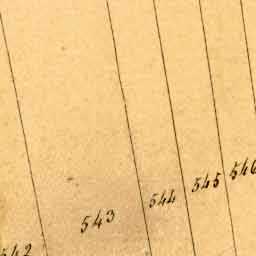 542 543 544 545 546